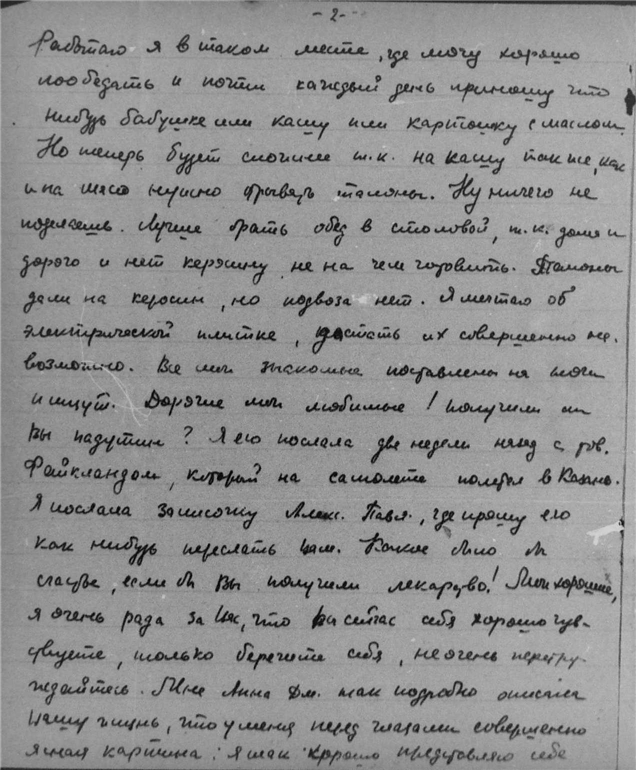 -2-
Работаю я в таком месте, где могу хорошо
пообедать и почти каждый день приношу что
нибудь бабушке или кашу или картошку с маслом.
Но теперь будет сложнее т.к. на кашу так же, как
и на мясо нужно отрывать талоны. Ну ничего не
поделаешь. Лучше брать обед в столовой, т.к. дома и
дорого и нет керосину не на чем готовить. Талоны
дали на керосин, но подвоза нет. Я мечтаю об
электрической плитке, достать их совершенно не-
возможно. Все мои знакомые поставлены на ноги
и ищут. Дорогие мои любимые! получили ли
вы падутин? Я его послала две недели назад с тов.
Файкландом, который на самолете полетел в Казань.
Я послала записочку Алекс. Павл., где прошу его
как нибудь переслать вам. Какое было бы
счастье, если бы вы получили лекарство! Мои хорошие,
я очень рада за вас, что вы сейчас себя хорошо чув-
ствуете, только берегите себя, не очень перетру-
ждайтесь. Мне Анна Дм. так подробно описала
вашу жизнь, что у меня перед глазами совершенно
ясная картина: я так хорошо представляю себе